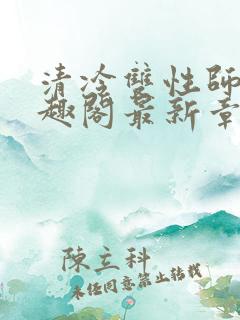 清冷雙性師
趣閣最新章
陳立科
未經同意禁止轉載